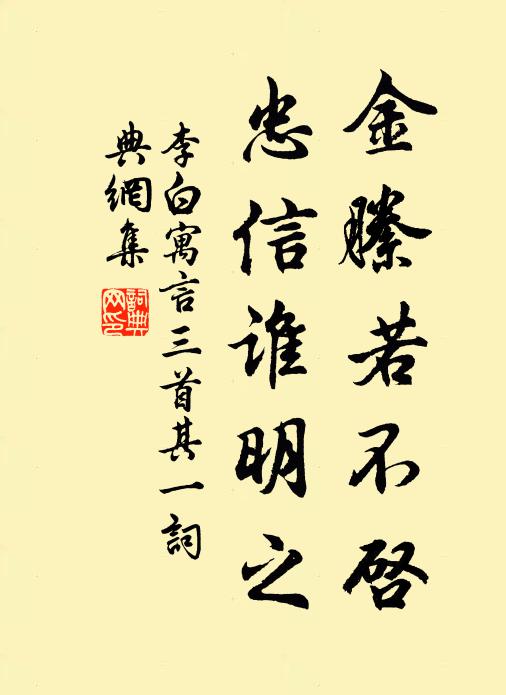 金縢若不启
忠信谁明之
李白寓言三首其一詞
典網集
詞典
网印